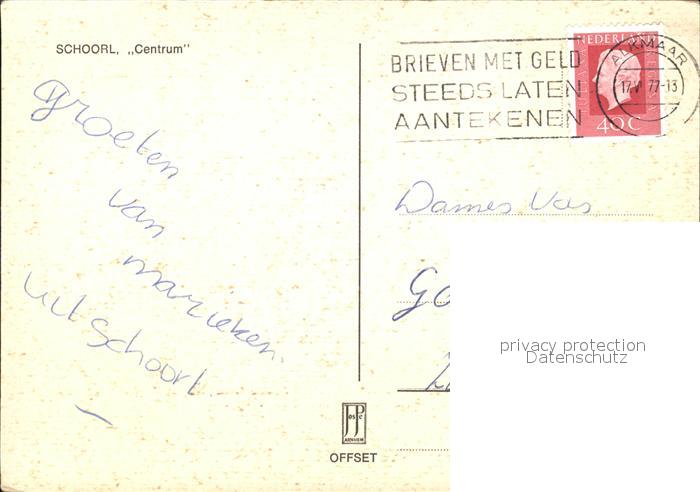 SCHOORL, „Centrum"
BRIEVEN MET GELD
STEEDS LATEN
AANTEKENEN
NEDERLAND
40C
ALKMAAR
77-13
Groeten
van
marieken
uit Schoorl.
Dames Vos
privacy protection
Datenschutz
ARNHEM
OFFSET